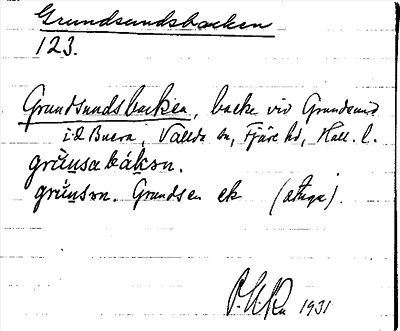 Grundsundsbacken
123.
Grundsundsbacken, backe vid Grundsund
i Ö Buera, Vallda sn, Fjäre hd, Hall. l.
grŭnsabákən.
grŭnsən. Grundsen ek (stuga).
1931